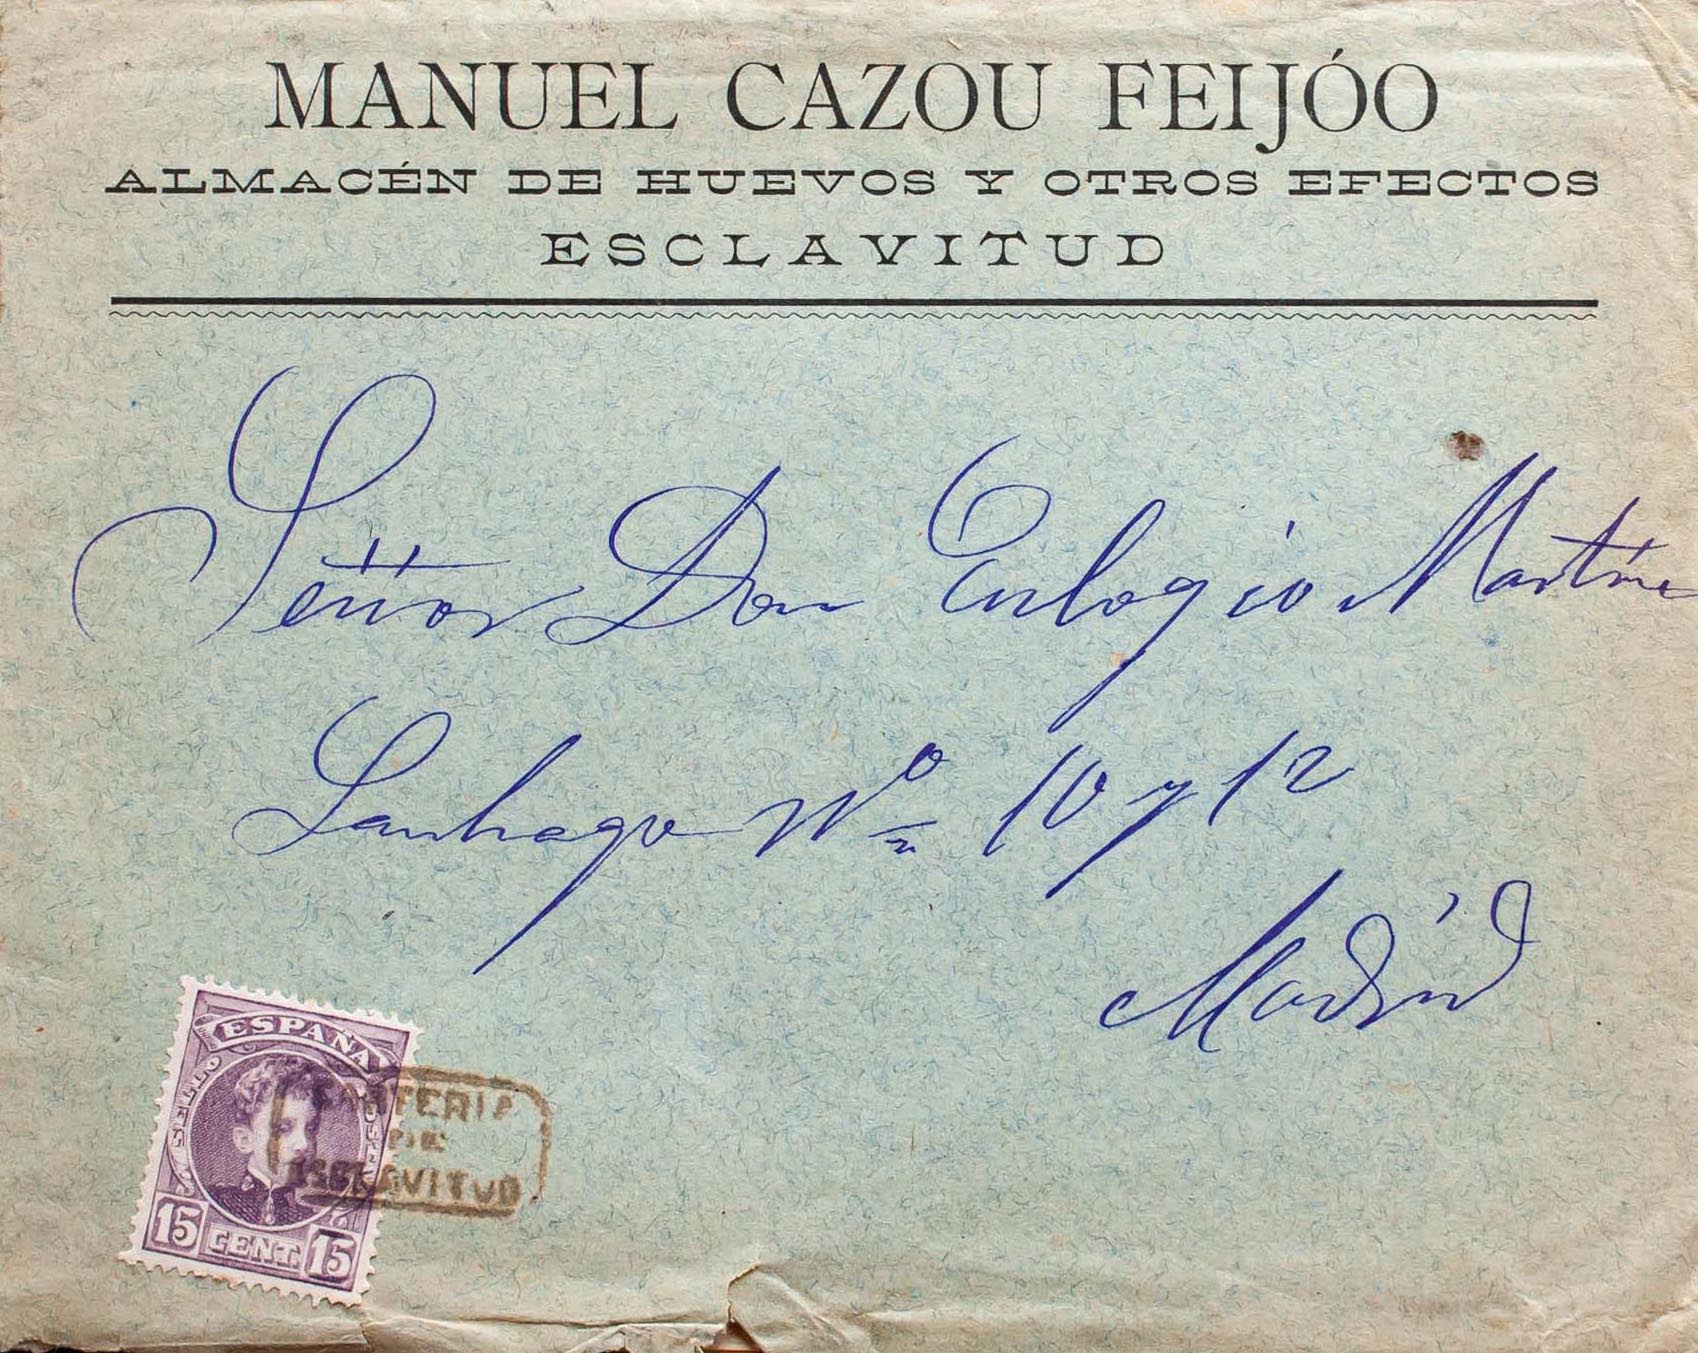 MANUEL CAZOU FEIJÓO
ALMACÉN DE HUEVOS Y OTROS EFECTOS
ESCLAVITUD
Señor Don Eulogio Martine
Santiago Nº 10 y 12
Madrid
ESPAÑA
SELLO
15 CENT. 15
CARTERIA
DE
ESCLAVITUD